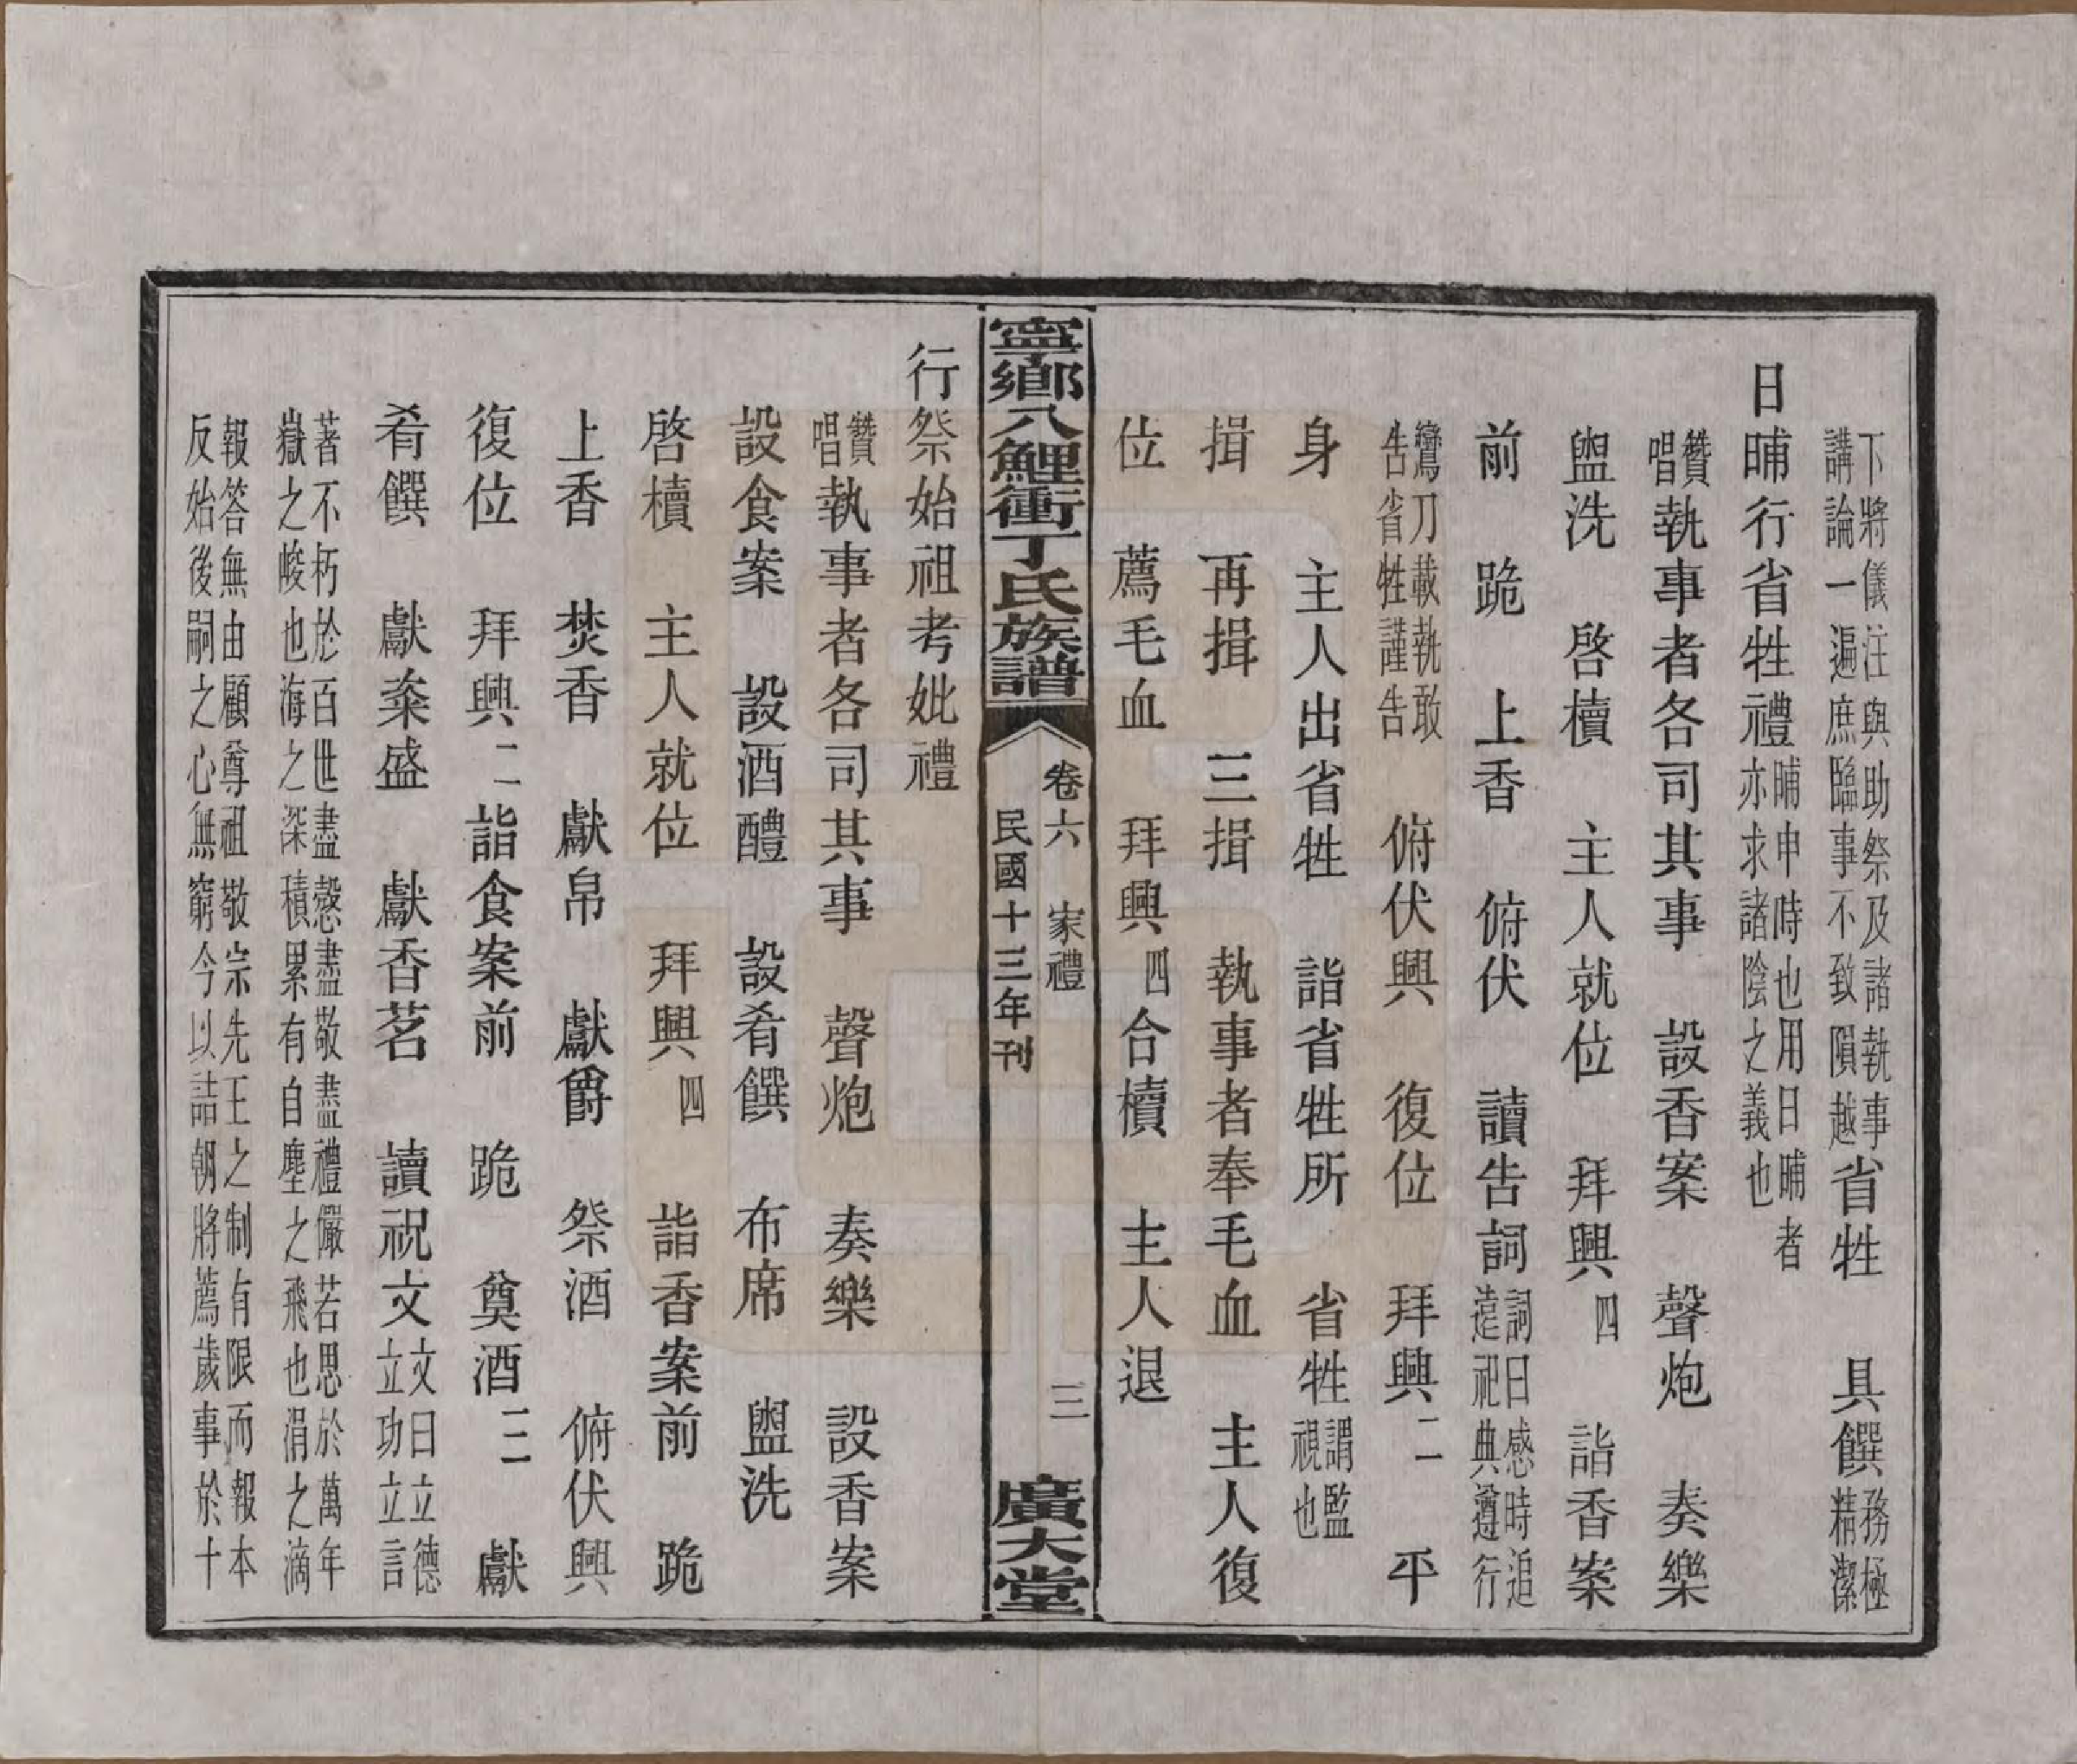 下將儀注與助祭及諸執事
講論一遍庶臨事不致隕越省牲　具饌務極
精潔
日晡行省牲禮晡申時也用日晡者
亦求諸陰之義也
贊唱執事者各司其事　設香案　聲炮　奏樂
盥洗　啓櫝　主人就位　拜興四　詣香案
前　跪　上香　俯伏　讀告詞詞曰感時追
遠祀典遵行
鸞刀載執敢
告省牲謹告　俯伏興　復位　拜興二　平
身　主人出省牲　詣省牲所　省牲謂監
視也
揖　再揖　三揖　執事者奉毛血　主人復
位　薦毛血　拜興四合櫝　主人退
寧鄉八鯉衝丁氏族譜
卷六　家禮　三
民國十三年刊
廣大堂
行祭始祖考妣禮
贊唱執事者各司其事　聲炮　奏樂　設香案
設食案　設酒醴　設肴饌　布席　盥洗
啓櫝　主人就位　拜興四　詣香案前　跪
上香　焚香　獻帛　獻爵　祭酒　俯伏興
復位　拜興二詣食案前　跪　奠酒三　獻
肴饌　獻粢盛　獻香茗　讀祝文文曰立德
立功立言
著不朽於百世盡慤盡敬盡禮儼若思於萬年
嶽之峻也海之深積累有自塵之飛也涓之滴
報答無由顧尊祖敬宗先王之制有限而報本
反始後嗣之心無窮今以詰朝將薦歲事於十